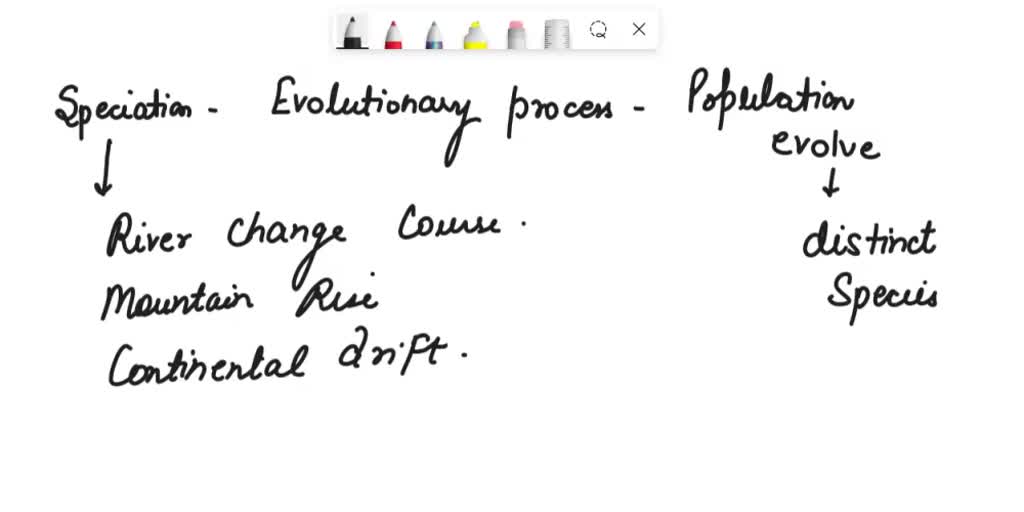 Speciation - Evolutionary process - Population
evolve
↓ ↓
River change Course.
distinct
Mountain Rise
Species
Continental drift.